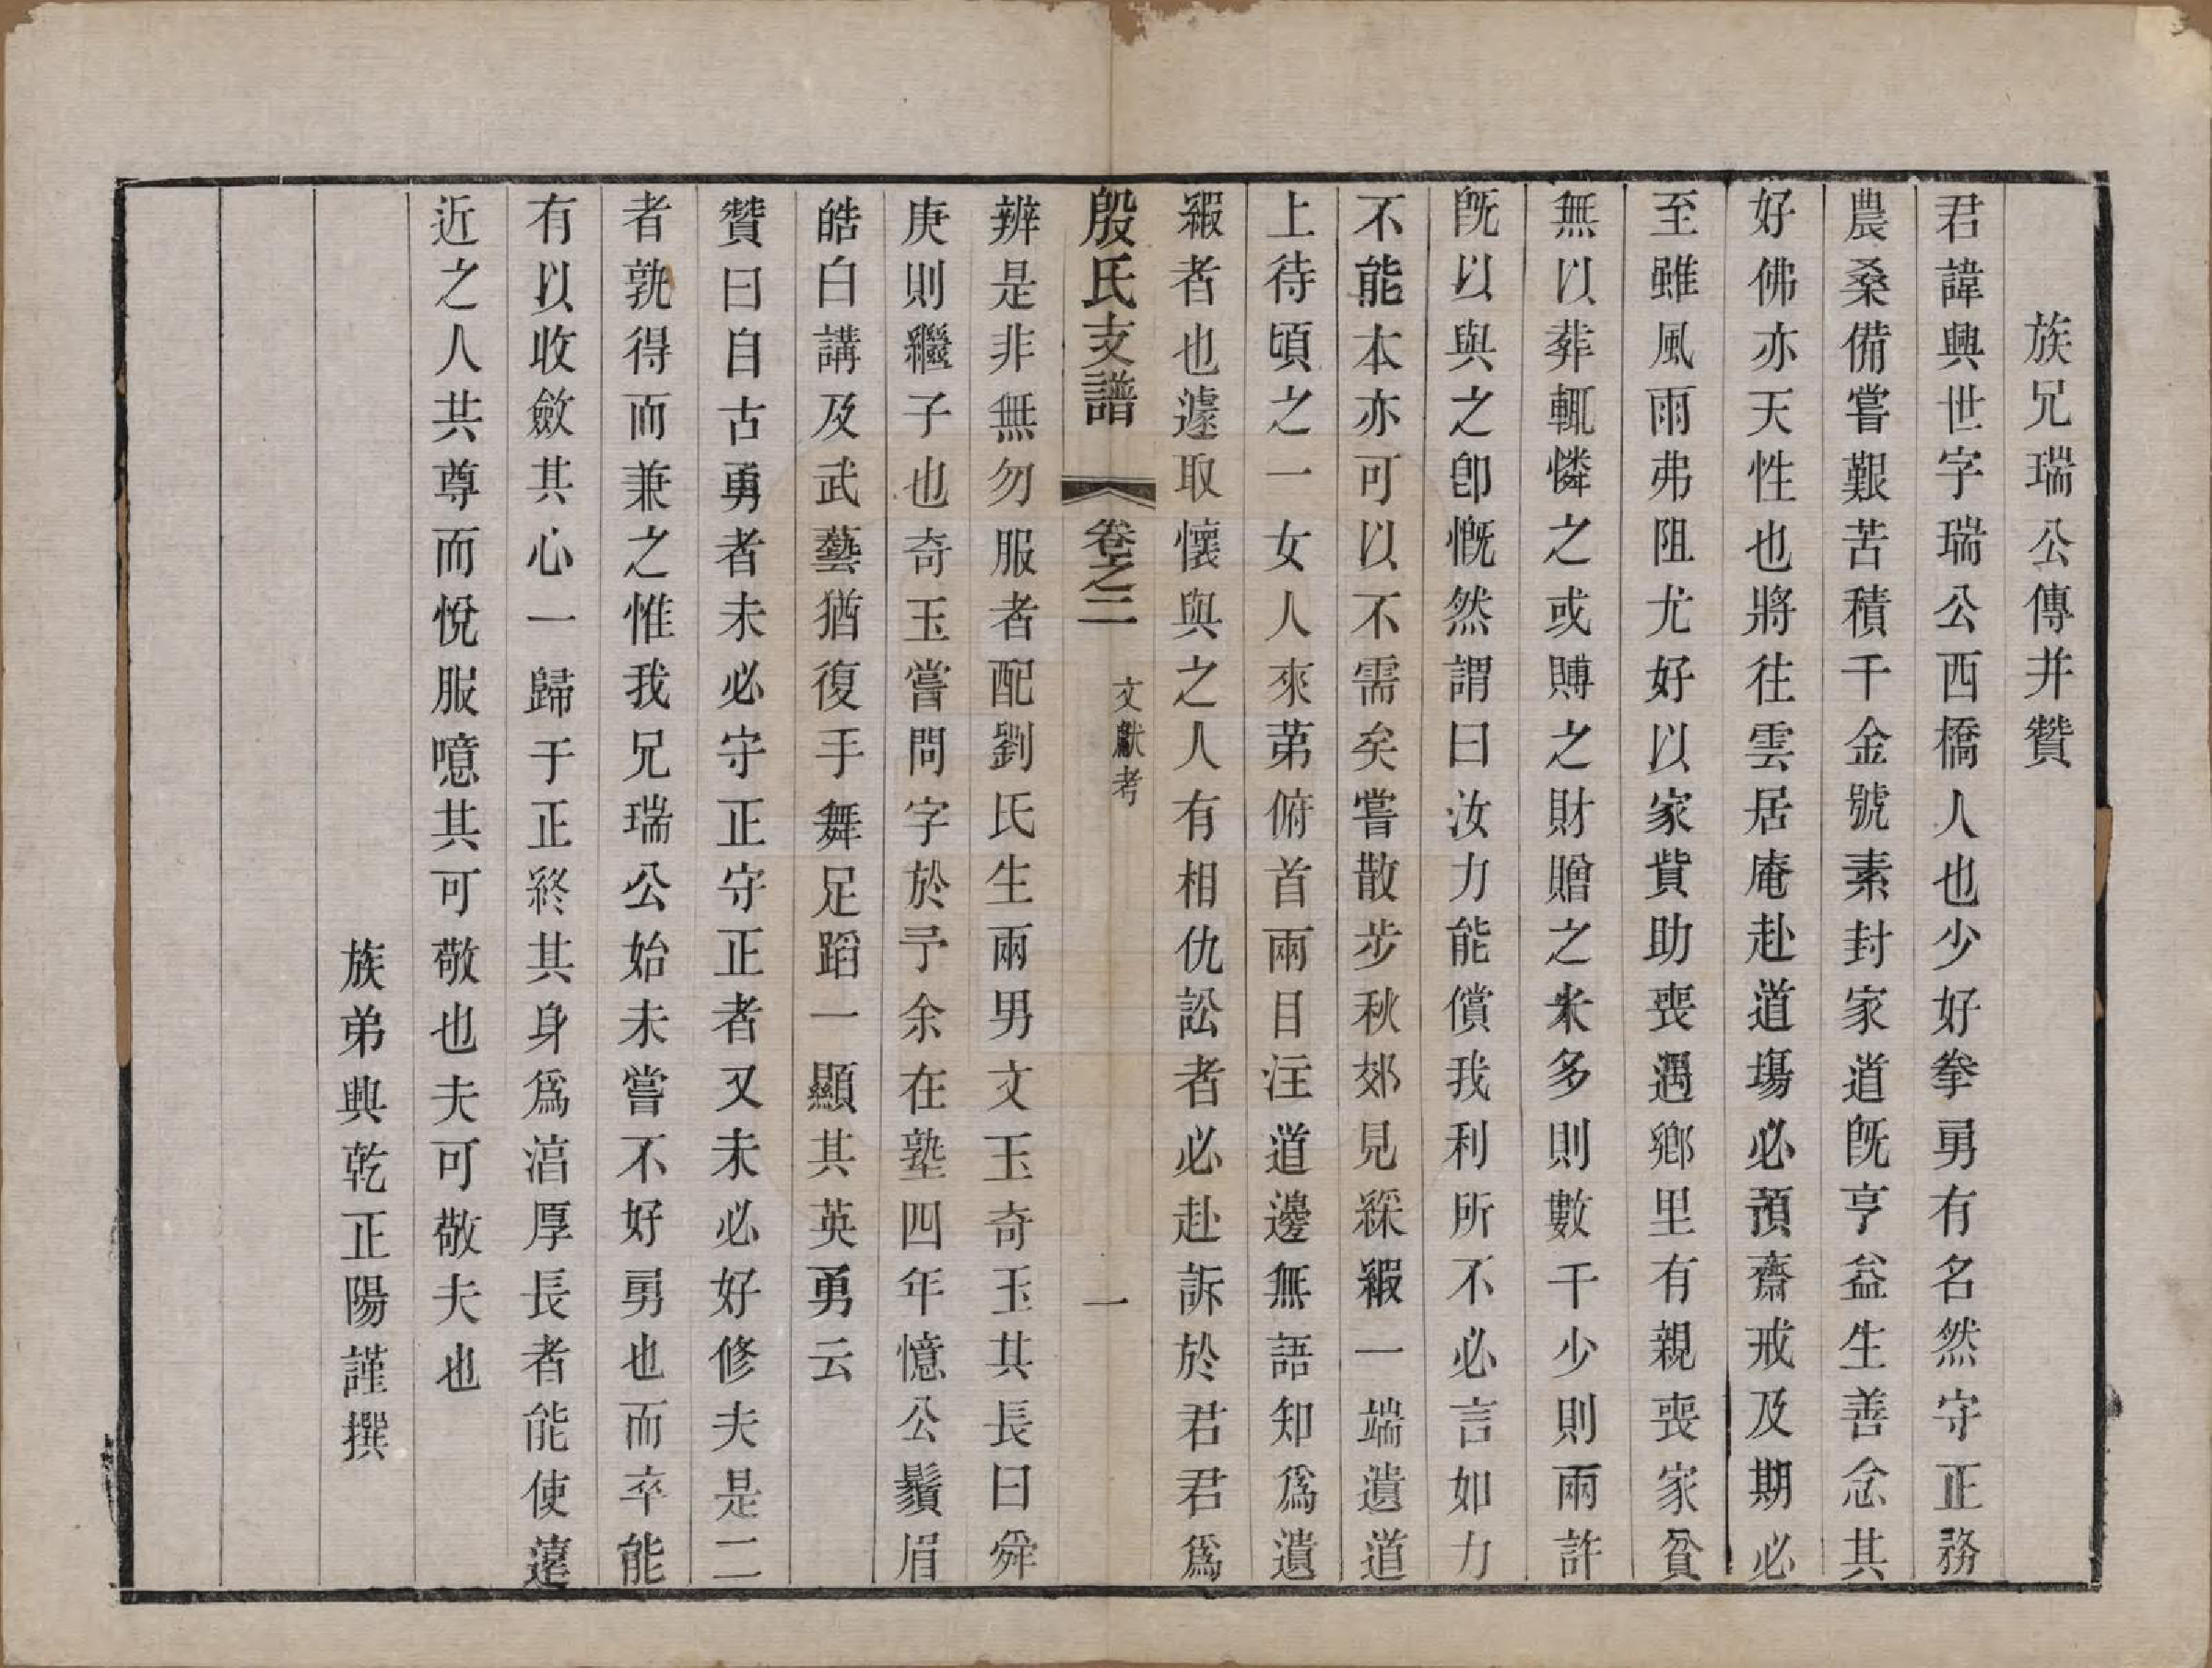 族兄瑞公傳并贊
君諱興世字瑞公西橋人也少好拳勇有名然守正務
農桑備嘗艱苦積千金號素封家道旣亨益生善念其
好佛亦天性也將往雲居庵赴道塲必預齋戒及期必
至雖風雨弗阻尤好以家貲助喪遇鄉里有親喪家貧
無以葬輒憐之或賻之財贈之米多則數千少則兩許
旣以與之卽慨然謂曰汝力能償我利所不必言如力
不能本亦可以不需矣嘗散步秋郊見綵緞一端遺道
上待頃之一女人來苐俯首兩目注道邊無語知爲遺
緞者也遽取懷與之人有相仇訟者必赴訴於君君爲
殷氏支譜 卷之二 文獻考 一
辨是非無勿服者配劉氏生兩男文玉奇玉其長曰舜
庚則繼子也奇玉嘗問字於予余在塾四年憶公鬚眉
皓白講及武藝猶復手舞足蹈一顯其英勇云
贊曰自古勇者未必守正守正者又未必好修夫是二
者孰得而兼之惟我兄瑞公始未嘗不好勇也而卒能
有以收斂其心一歸于正終其身爲湻厚長者能使遠
近之人共尊而悅服噫其可敬也夫可敬夫也
族弟興乾正陽謹撰